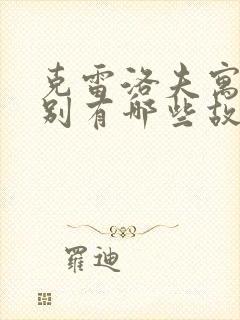 克雷洛夫寓
别有哪些故
羅迪